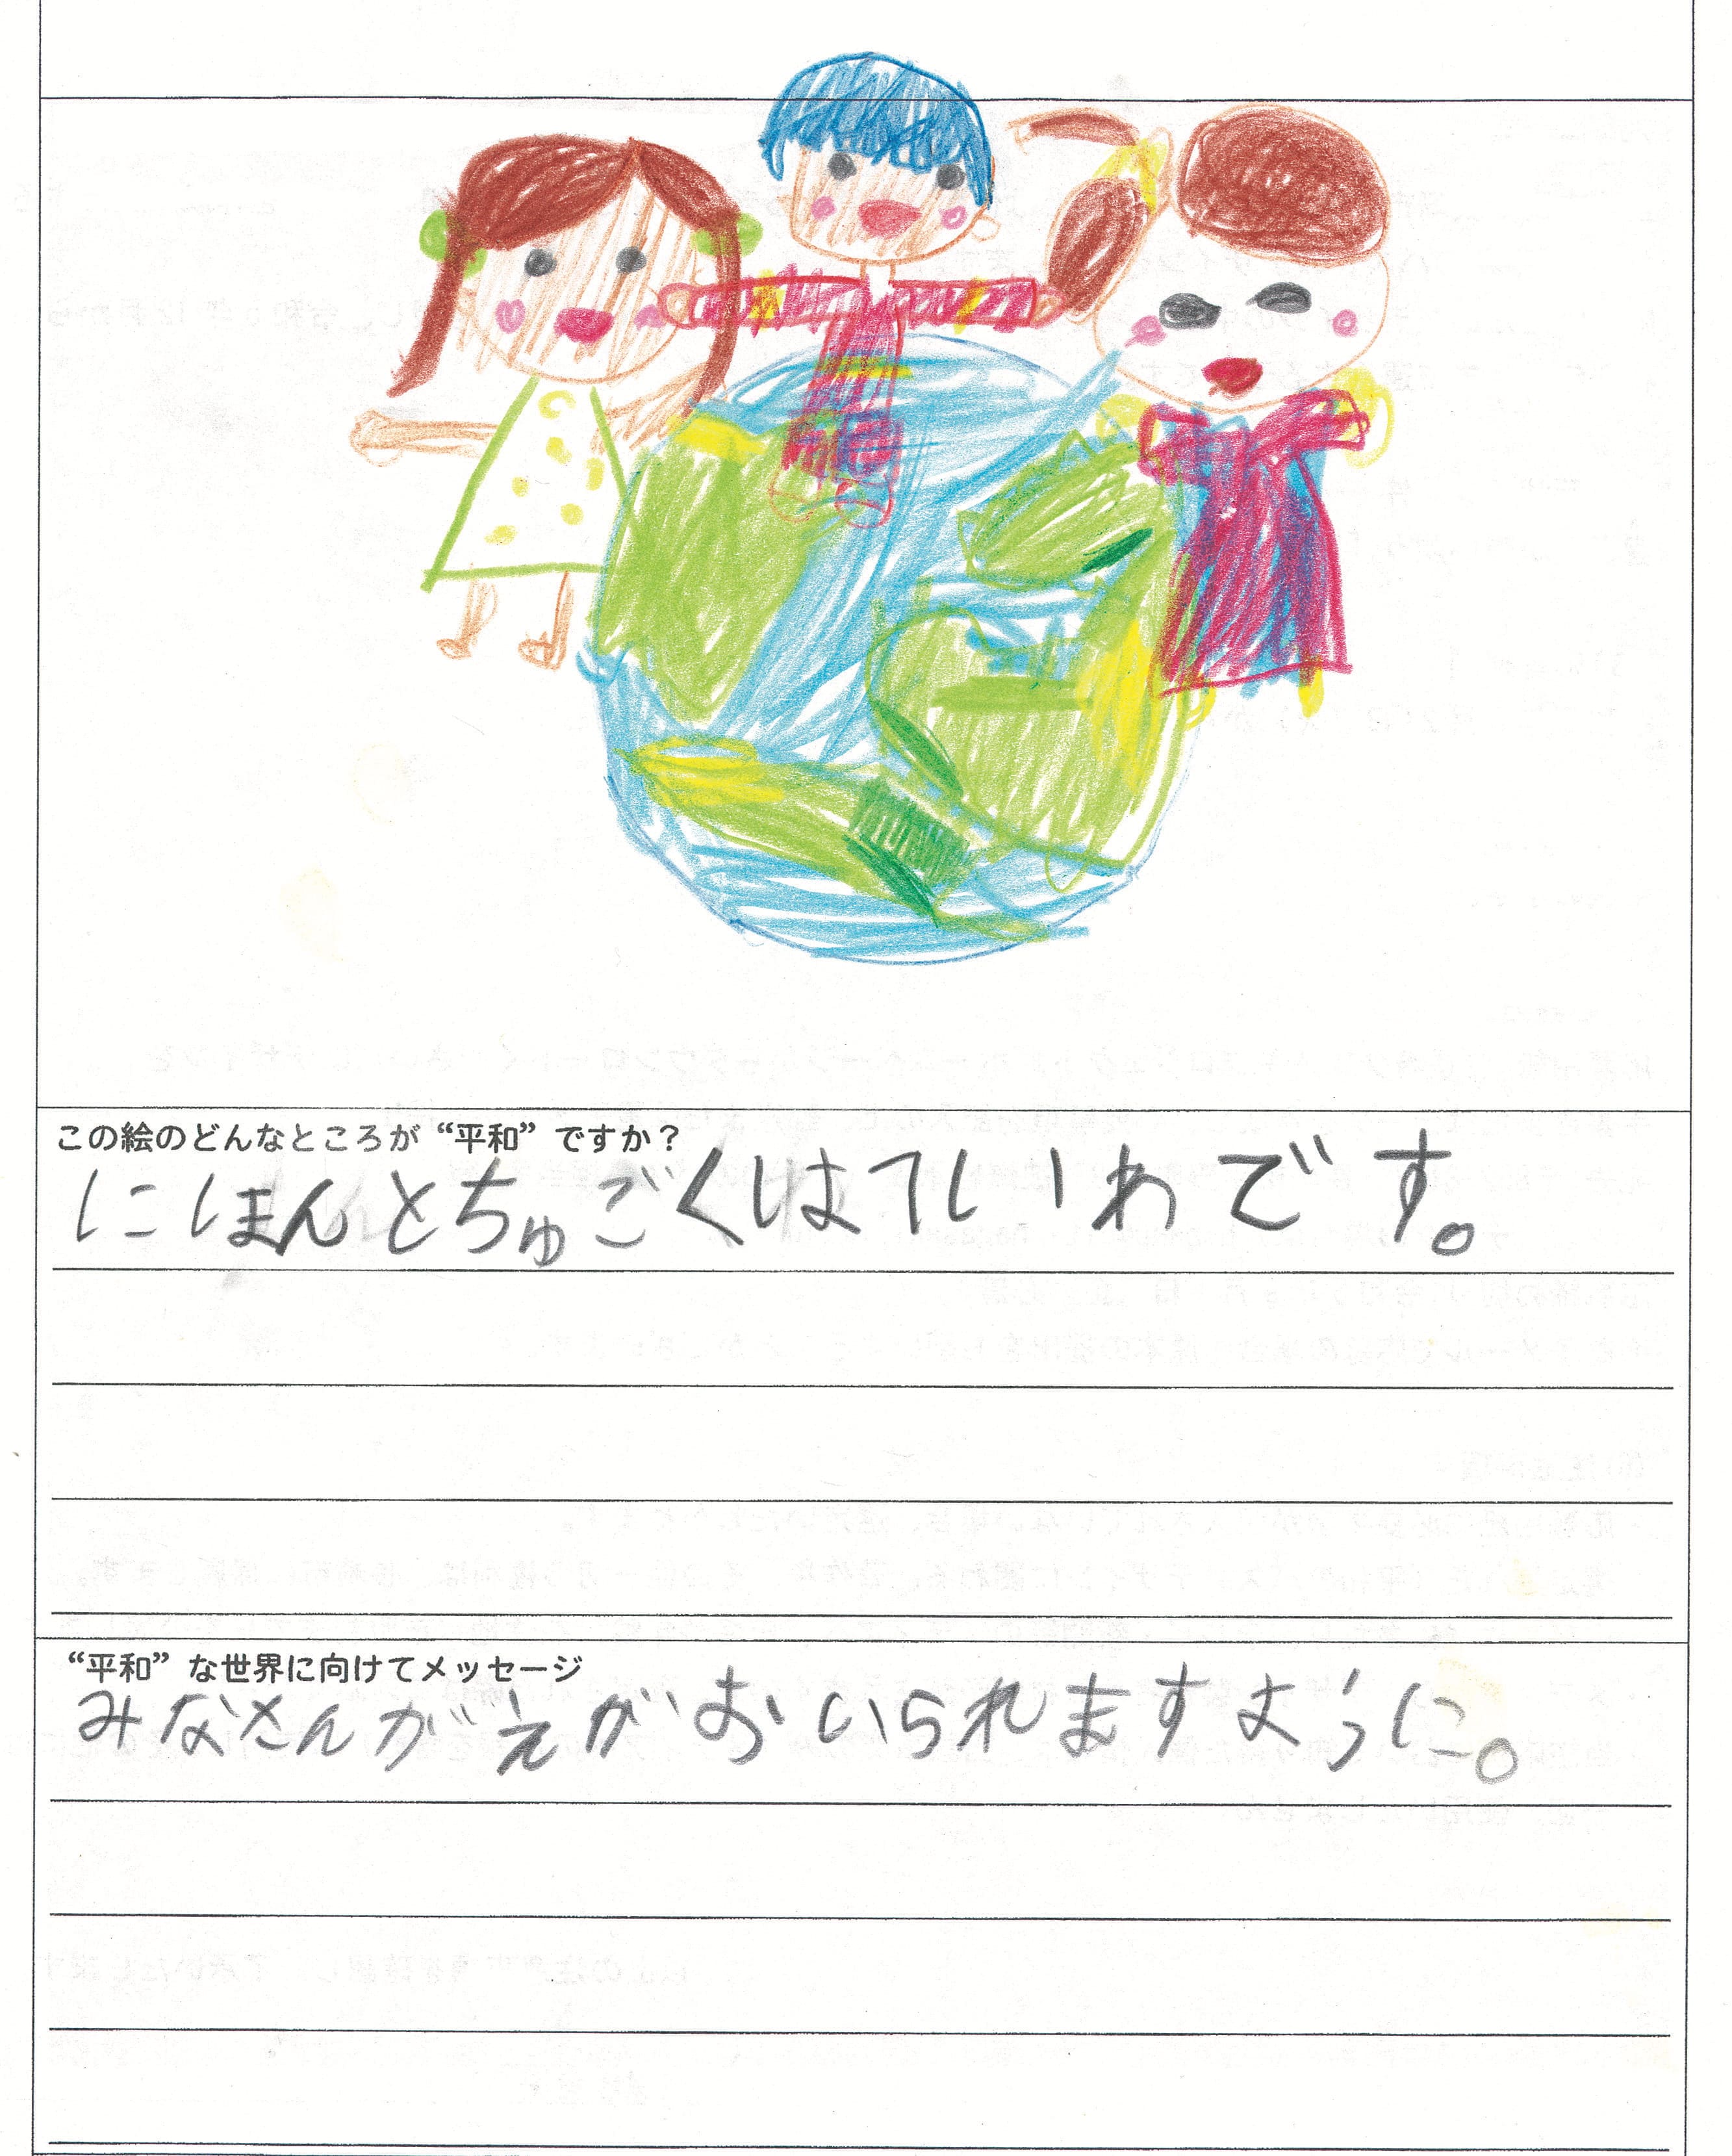 この絵のどんなところが“平和”ですか？
にほんとちゅごくはへいわです。
“平和”な世界に向けてメッセージ
みなさんがえがおいられますように。